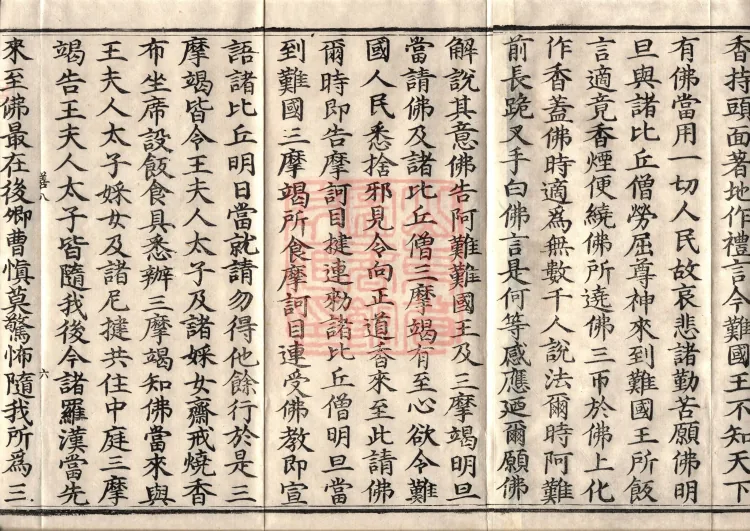 香持頭面著地作禮言今難國王不知天下
有佛當用一切人民故哀悲諸勤苦願佛明
旦與諸比丘僧勞屈尊神來到難國王所飯
言適竟香煙便繞佛所遶佛三帀於佛上化
作香蓋佛時適爲無數千人說法爾時阿難
前長跪叉手白佛言是何等感應廼爾願佛
解說其意佛告阿難難國王及三摩竭明旦
當請佛及諸比丘僧三摩竭有至心欲令難
國人民悉捨邪見令向正道香來至此請佛
爾時即告摩訶目揵連勑諸比丘僧明旦當
到難國三摩竭所食摩訶目連受佛教即宣
語諸比丘明日當就請勿得他餘行於是三
摩竭皆令王夫人太子及諸婇女齋戒燒香
布坐席設飯食具悉辦三摩竭知佛當來與
王夫人太子婇女及諸尼揵共住中庭三摩
竭告王夫人太子皆隨我後今諸羅漢當先
善八 六
來至佛最在後卿曹愼莫驚怖隨我所爲三